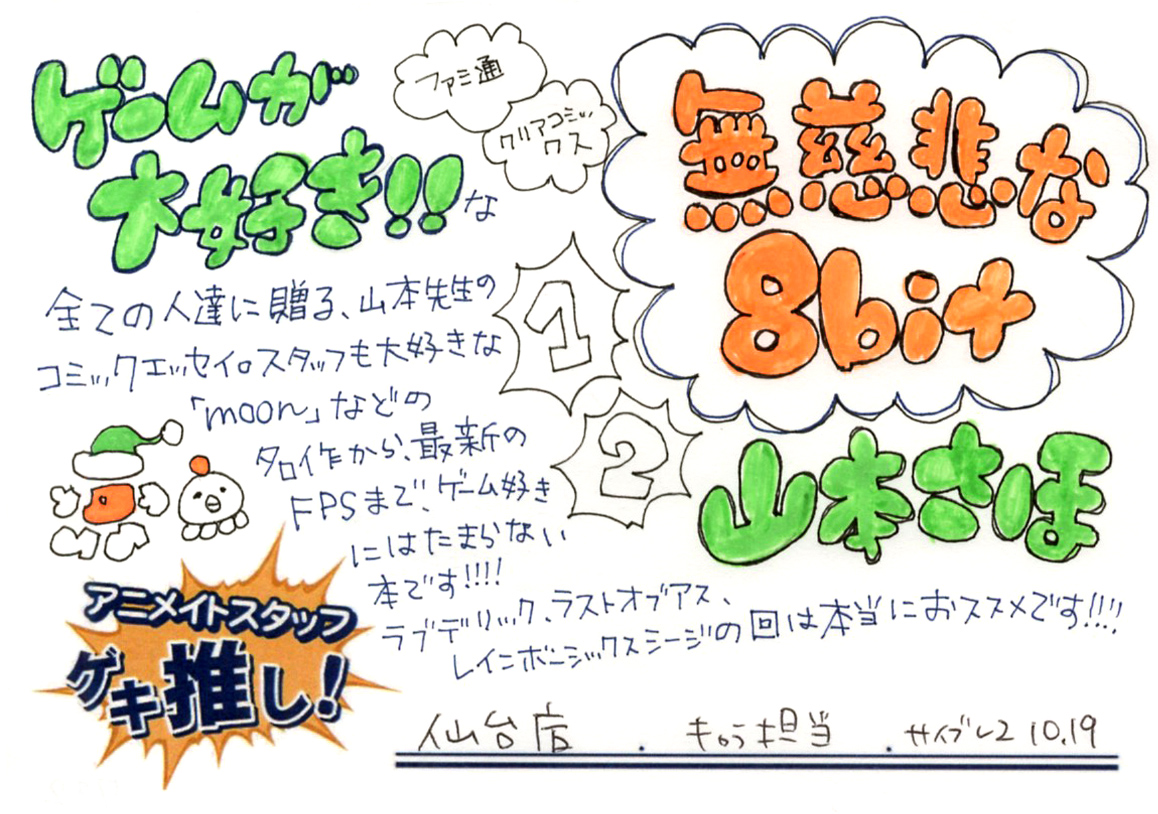 ゲームが
大好き!!な
全ての人達に贈る、山本先生の
コミックエッセイ。スタッフも大好きな
「moon」などの
名作から、最新の
FPSまで、ゲーム好き
にはたまらない
本です!!!!
ラブデリック、ラストオブアス、
レインボーシックスシージの回は本当におススメです!!!!
ファミ通
クリアコミッ
クス
無慈悲な
8bit
1
2
山本さほ
アニメイトスタッフ
ゲキ推し!
仙台店 . キャラ担当 . サイブレ2 10.19